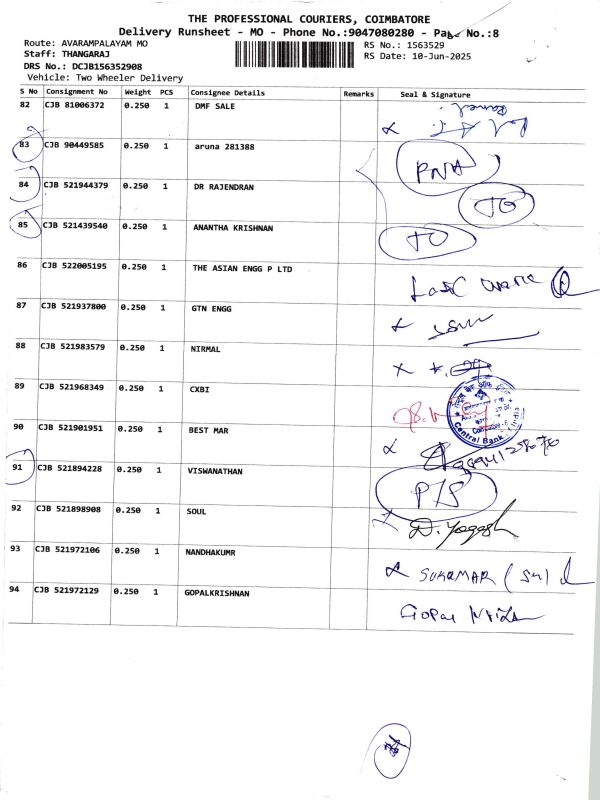 THE PROFESSIONAL COURIERS, COIMBATORE
Delivery Runsheet - MO - Phone No.:9047080280 - Page No.:8
Route: AVARAMPALAYAM MO
RS No.: 1563529
Staff: THANGARAJ
RS Date: 10-Jun-2025
DRS No.: DCJB156352908
Vehicle: Two Wheeler Delivery
S No Consignment No Weight PCS Consignee Details Remarks Seal & Signature
82 CJB 81006372 0.250 1 DMF SALE
83 CJB 90449585 0.250 1 aruna 281388 PNA
84 CJB 521944379 0.250 1 DR RAJENDRAN
85 CJB 521439540 0.250 1 ANANTHA KRISHNAN
86 CJB 522005195 0.250 1 THE ASIAN ENGG P LTD
87 CJB 521937800 0.250 1 GTN ENGG
88 CJB 521983579 0.250 1 NIRMAL
89 CJB 521968349 0.250 1 CXBI
Central Bank of India
90 CJB 521901951 0.250 1 BEST MAR
91 CJB 521894228 0.250 1 VISWANATHAN P/S
92 CJB 521898908 0.250 1 SOUL D. Yogesh
93 CJB 521972106 0.250 1 NANDHAKUMR SUKUMAR
94 CJB 521972129 0.250 1 GOPALKRISHNAN Gopal